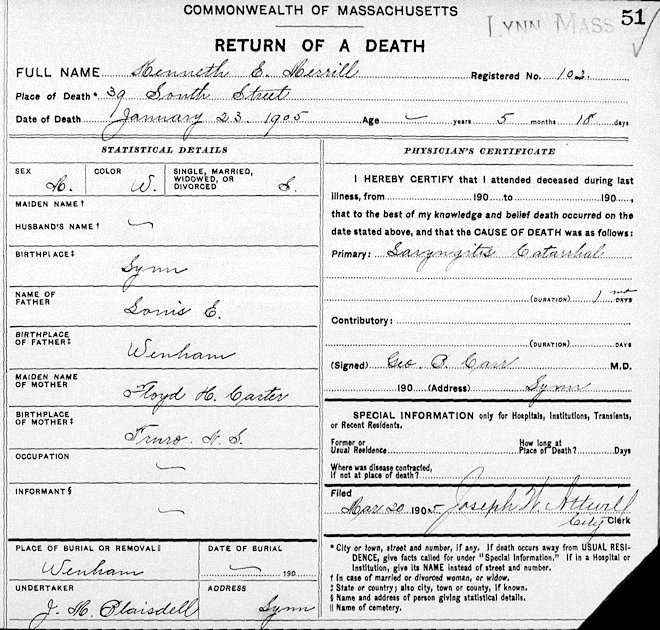 COMMONWEALTH OF MASSACHUSETTS
LYNN MASS
51
RETURN OF A DEATH
FULL NAME Kenneth E. Merrill Registered No. 102.
Place of Death* 39 South Street
Date of Death January 23. 1905 Age — years 5 months 18 days
STATISTICAL DETAILS
SEX M. COLOR W. SINGLE, MARRIED, WIDOWED, OR DIVORCED S.
MAIDEN NAME†
HUSBAND'S NAME† —
BIRTHPLACE‡
Lynn
NAME OF FATHER
Louis E.
BIRTHPLACE OF FATHER‡
Wenham
MAIDEN NAME OF MOTHER
Floyd H. Carter
BIRTHPLACE OF MOTHER‡
Truro. N. S.
OCCUPATION
—
INFORMANT§
—
PLACE OF BURIAL OR REMOVAL‖ DATE OF BURIAL
Wenham — 190
UNDERTAKER ADDRESS
J. M. Blaisdell Lynn
PHYSICIAN'S CERTIFICATE
I HEREBY CERTIFY that I attended deceased during last
illness, from 190 to 190 ,
that to the best of my knowledge and belief death occurred on the
date stated above, and that the CAUSE OF DEATH was as follows:
Primary: Laryngitis Catarrhal
(DURATION) 1 mo DAYS
Contributory:
(DURATION) DAYS
(Signed) Geo. B. Carr M.D.
190 (Address) Lynn
SPECIAL INFORMATION only for Hospitals, Institutions, Transients,
or Recent Residents.
Former or Usual Residence How long at Place of Death? Days
Where was disease contracted,
If not at place of death?
Filed
Mar 20 1905 Joseph W. Attwill
City Clerk
* City or town, street and number, if any. If death occurs away from USUAL RESI-
DENCE, give facts called for under "Special Information." If in a Hospital or
Institution, give its NAME instead of street and number.
† In case of married or divorced woman, or widow.
‡ State or country; also city, town or county, if known.
§ Name and address of person giving statistical details.
‖ Name of cemetery.